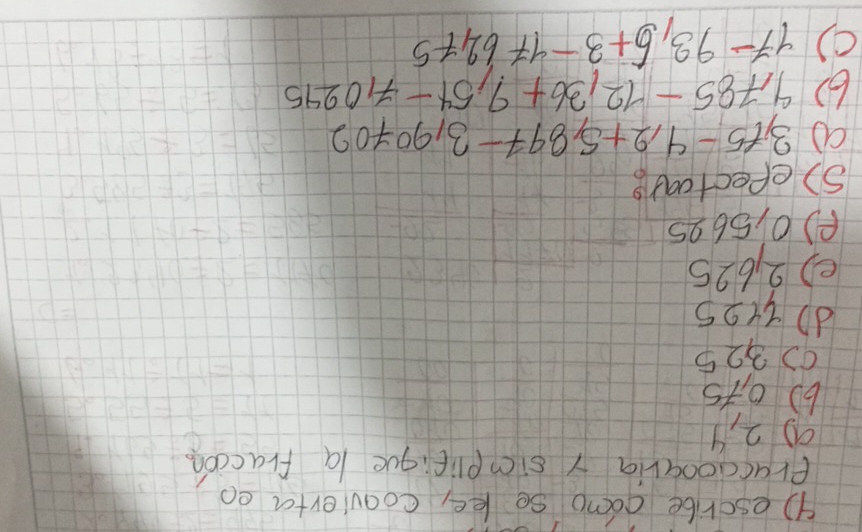 4) escribe cómo se lee, convierta en
fraccionaria y simplifique la fracción.
a) 2,4
b) 0,75
c) 3,25
d) 1,125
e) 2,625
f) 0,5625
5) efectuar:
a) 3,75 - 4,2 + 5,847 - 3,90702
b) 4,785 - 12,36 + 9,51 - 7,0245
c) 17 - 93,5 + 3 - 17,6275